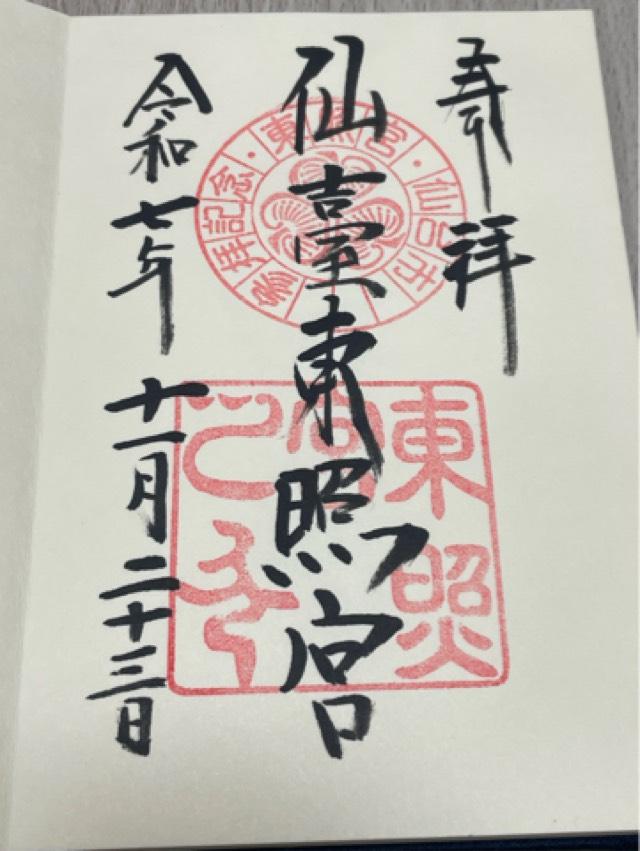 奉拝
仙臺東照宮
令和七年 十一月二十三日
東照宮・仙台市
参拝記念
東照
宮